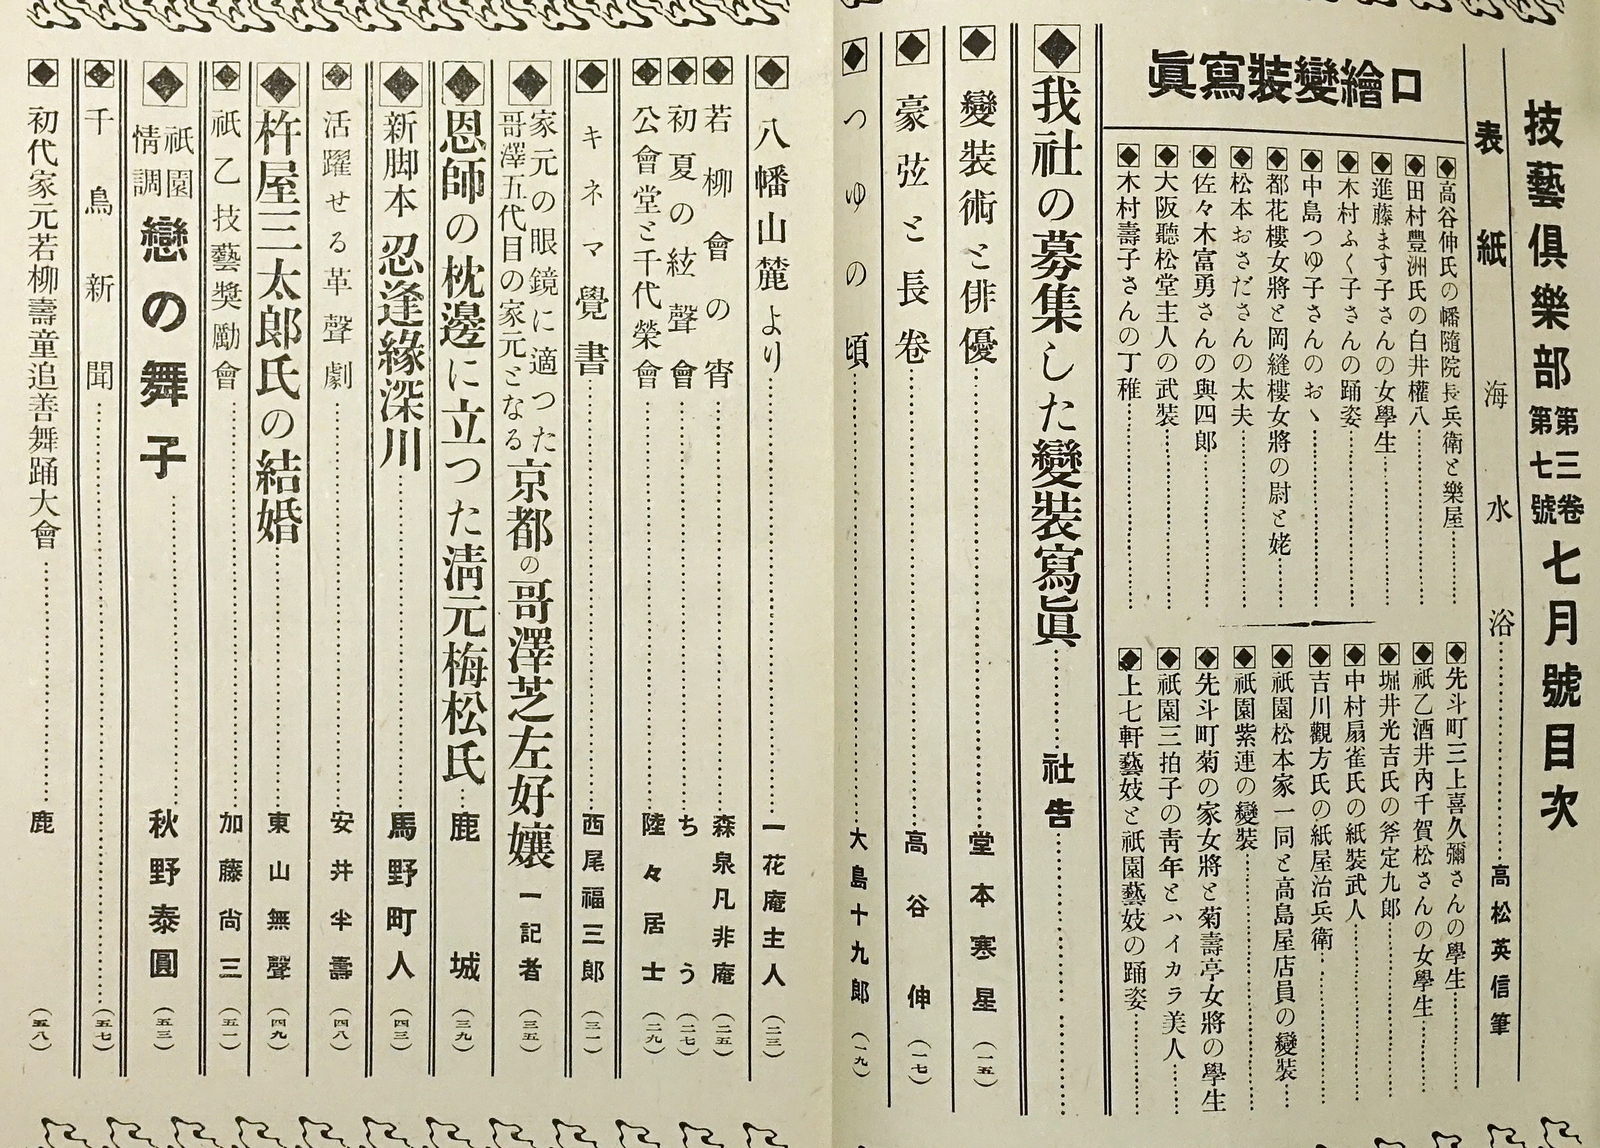 技藝俱樂部 第三卷第七號 七月號目次
表紙 海水浴 高松英信筆
口繪變裝寫眞
高谷伸氏の幡隨院長兵衛と樂屋
田村豐洲氏の白井權八
進藤ます子さんの女學生
木村ふく子さんの踊姿
中島つゆ子さんのおゝ
都花樓女將と岡縫樓女將の尉と姥
松本おさださんの太夫
佐々木富勇さんの與四郎
大阪聽松堂主人の武裝
木村壽子さんの丁稚
先斗町三上喜久彌さんの學生
祇乙酒井內千賀松さんの女學生
堀井光吉氏の斧定九郎
中村扇雀氏の紙裝武人
吉川觀方氏の紙屋治兵衛
祇園松本家一同と高島屋店員の變裝
祇園紫連の變裝
先斗町菊の家女將と菊壽亭女將の學生
祇園三拍子の靑年とハイカラ美人
上七軒藝妓と祇園藝妓の踊姿
我社の募集した變裝寫眞 社告
變裝術と俳優 堂本寒星 (一五)
豪弦と長卷 高谷伸 (一七)
つゆの頃 大島十九郎 (一九)
八幡山麓より 一花庵主人 (二三)
若柳會の宵 森泉凡非庵 (二五)
初夏の絃聲會 ちう (二七)
公會堂と千代榮會 陸々居士 (二九)
キネマ覺書 西尾福三郎 (三一)
家元の眼鏡に適つた
哥澤五代目の家元となる
京都の哥澤芝左好孃 一記者 (三五)
恩師の枕邊に立つた淸元梅松氏 鹿城 (三九)
新脚本 忍逢緣深川 馬野町人 (四三)
活躍せる革聲劇 安井半壽 (四八)
杵屋三太郎氏の結婚 東山無聲 (四九)
祇乙技藝獎勵會 加藤尙三 (五一)
祇園情調 戀の舞子 秋野泰圓 (五三)
千鳥新聞 (五七)
初代家元若柳壽童追善舞踊大會 鹿 (五八)